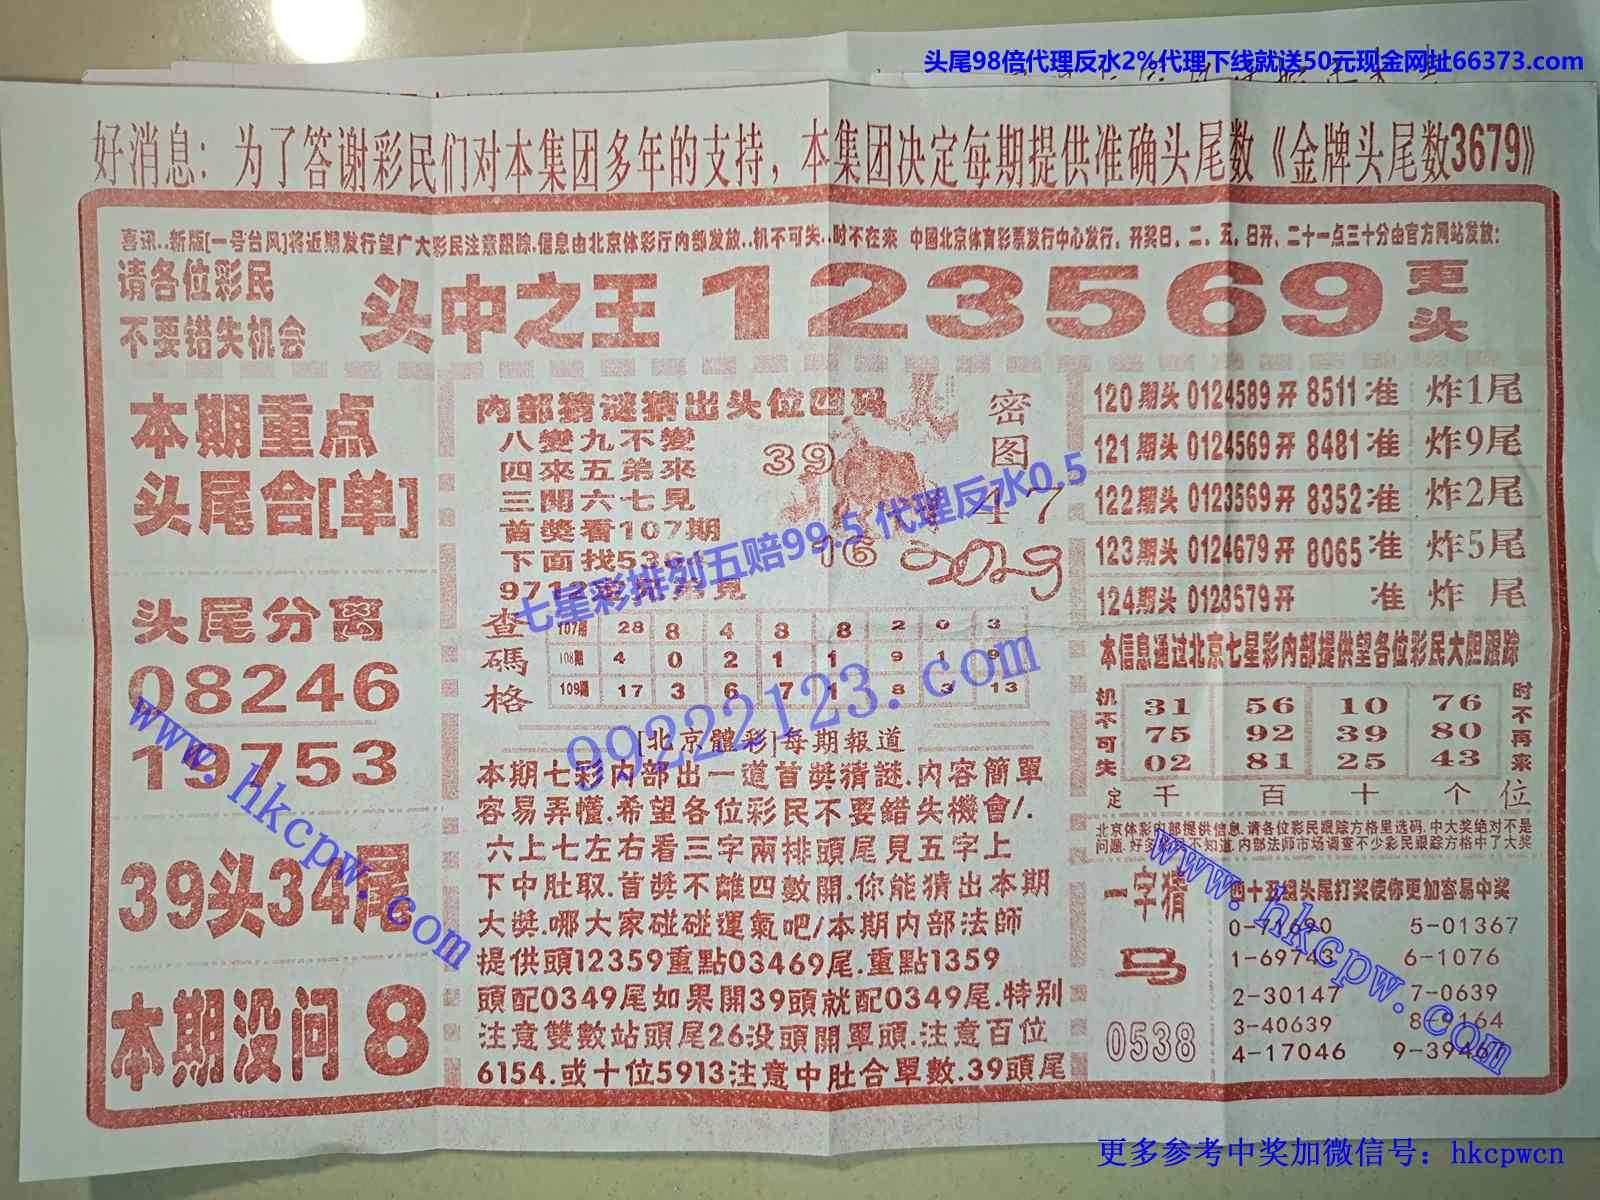 头尾98倍代理反水2%代理下线就送50元现金网址66373.com
好消息：为了答谢彩民们对本集团多年的支持，本集团决定每期提供准确头尾数《金牌头尾数3679》
喜讯..新版[一号台风]将近期发行望广大彩民注意跟踪.信息由北京体彩厅内部发放..机不可失..时不在来 中國北京体育彩票发行中心发行．开奖日．二．五．日开．二十一点三十分由官方网站发放：
请各位彩民
不要错失机会
头中之王 123569 更头
本期重点
头尾合[单]
头尾分离
08246
19753
39头34尾
本期没问 8
内部猜谜猜出头位四码
八變九不變
四來五弟來
三開六七見
首獎看107期
下面找536
9712
39
密图
47
16
2023
查碼格
107期 28 8 4 8 8 2 0 3
108期 4 0 2 1 1 9 1 9
109期 17 3 6 7 1 8 3 13
[北京體彩]每期報道
本期七彩内部出一道首獎猜謎.内容簡單
容易弄懂.希望各位彩民不要錯失機會/.
六上七左右看三字兩排頭尾見五字上
下中肚取.首獎不離四數開.你能猜出本期
大獎.哪大家碰碰運氣吧/本期内部法師
提供頭12359重點03469尾.重點1359
頭配0349尾如果開39頭就配0349尾.特别
注意雙數站頭尾26没頭開單頭.注意百位
6154.或十位5913注意中肚合單數.39頭尾
120期头 0124589开 8511 准 炸1尾
121期头 0124569开 8481 准 炸9尾
122期头 0123569开 8352 准 炸2尾
123期头 0124679开 8065 准 炸5尾
124期头 0123579开 准 炸 尾
本信息通过北京七星彩内部提供望各位彩民大胆跟踪
机不可失
31 56 10 76
75 92 39 80
02 81 25 43
时不再来
定 千 百 十 个 位
北京体彩内部提供信息.请各位彩民跟踪方格里选码.中大奖绝对不是
问题.好多彩民不知道.内部法师市场调查不少彩民跟踪方格中了大奖
一字猜
马
0538
四十五组头尾打奖使你更加容易中奖
0-71690 5-01367
1-69743 6-1076
2-30147 7-0639
3-40639 8-9164
4-17046 9-39461
七星彩排列五赔99.5 代理反水0.5
99222123.com
www.hkcpw.com
www.hkcpw.com
更多参考中奖加微信号：hkcpwcn